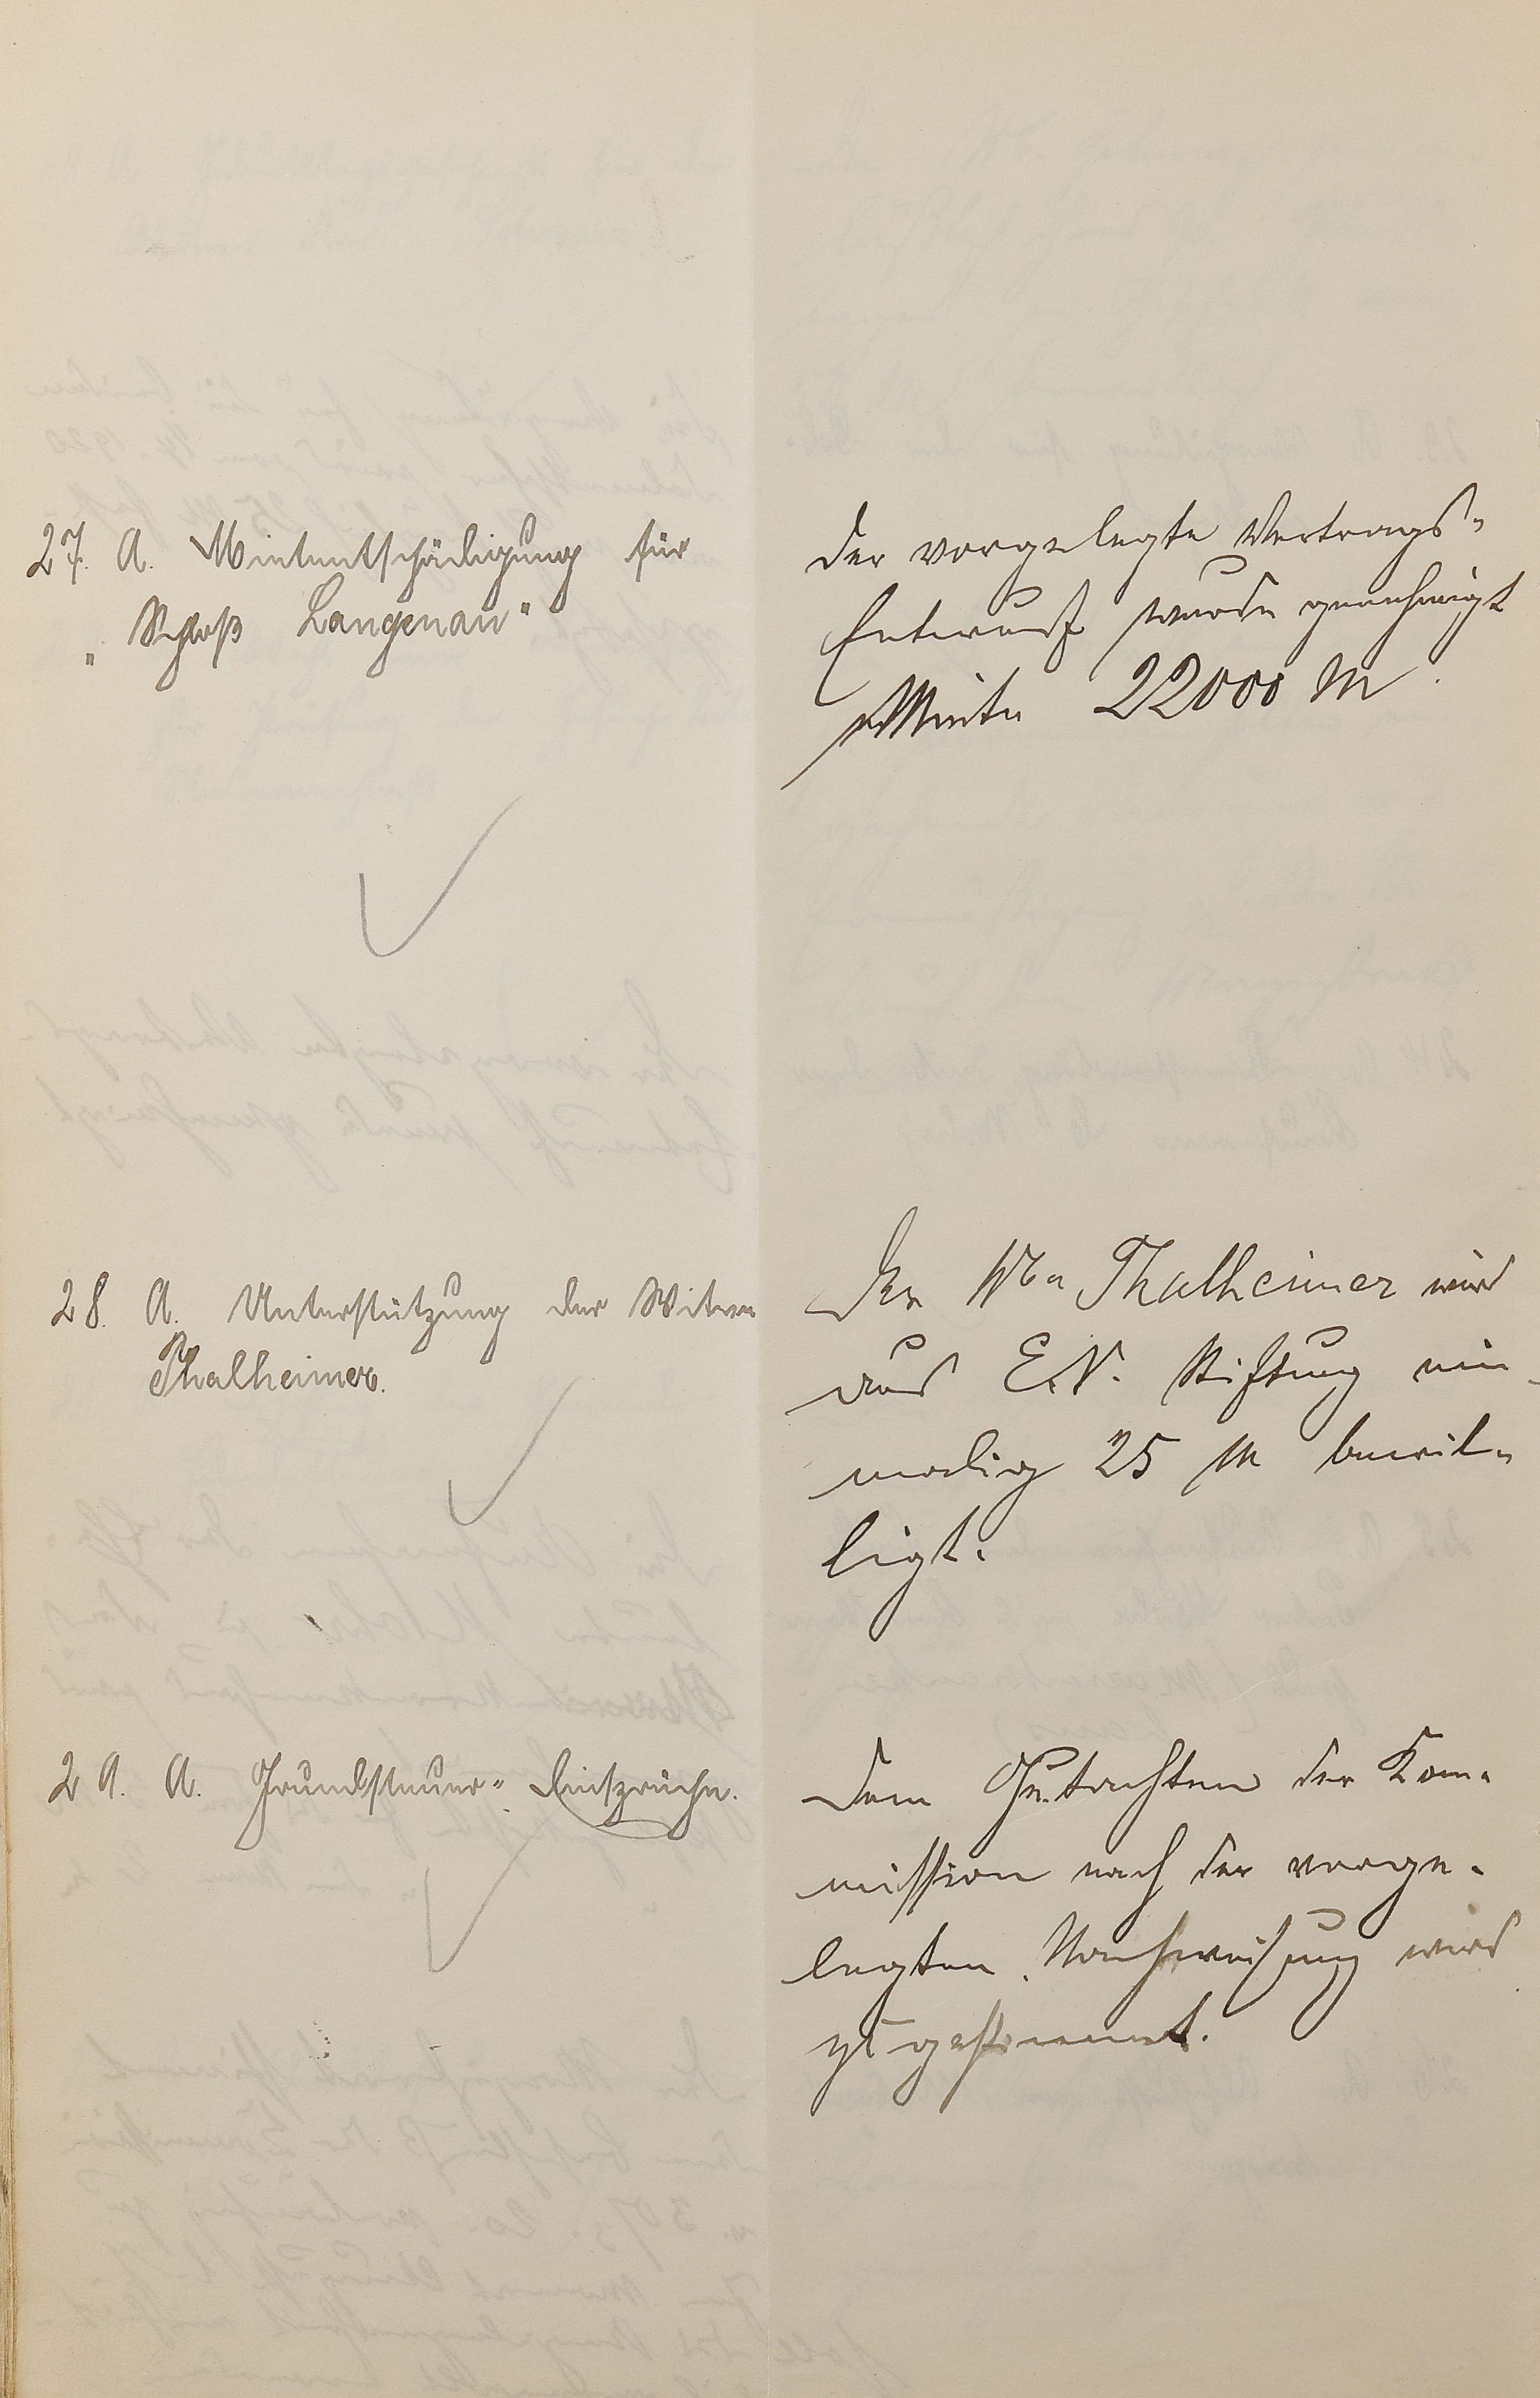 27. A. Mietentschädigung für
„Schloß Langenau"
Der vorgelegte Vertrags-
Entwurf wurde genehmigt
Miete 22000 M.
28. A. Unterstützung der Witwe
Thalheimer.
Der Wwe Thalheimer wird
aus E.V. Stiftung ein-
malig 25 M bewil-
ligt.
29. A. Grundsteuer-Einsprüche.
Dem Gutachten der Kom-
mission nach der vorge-
legten Nachweisung wird
zugestimmt.